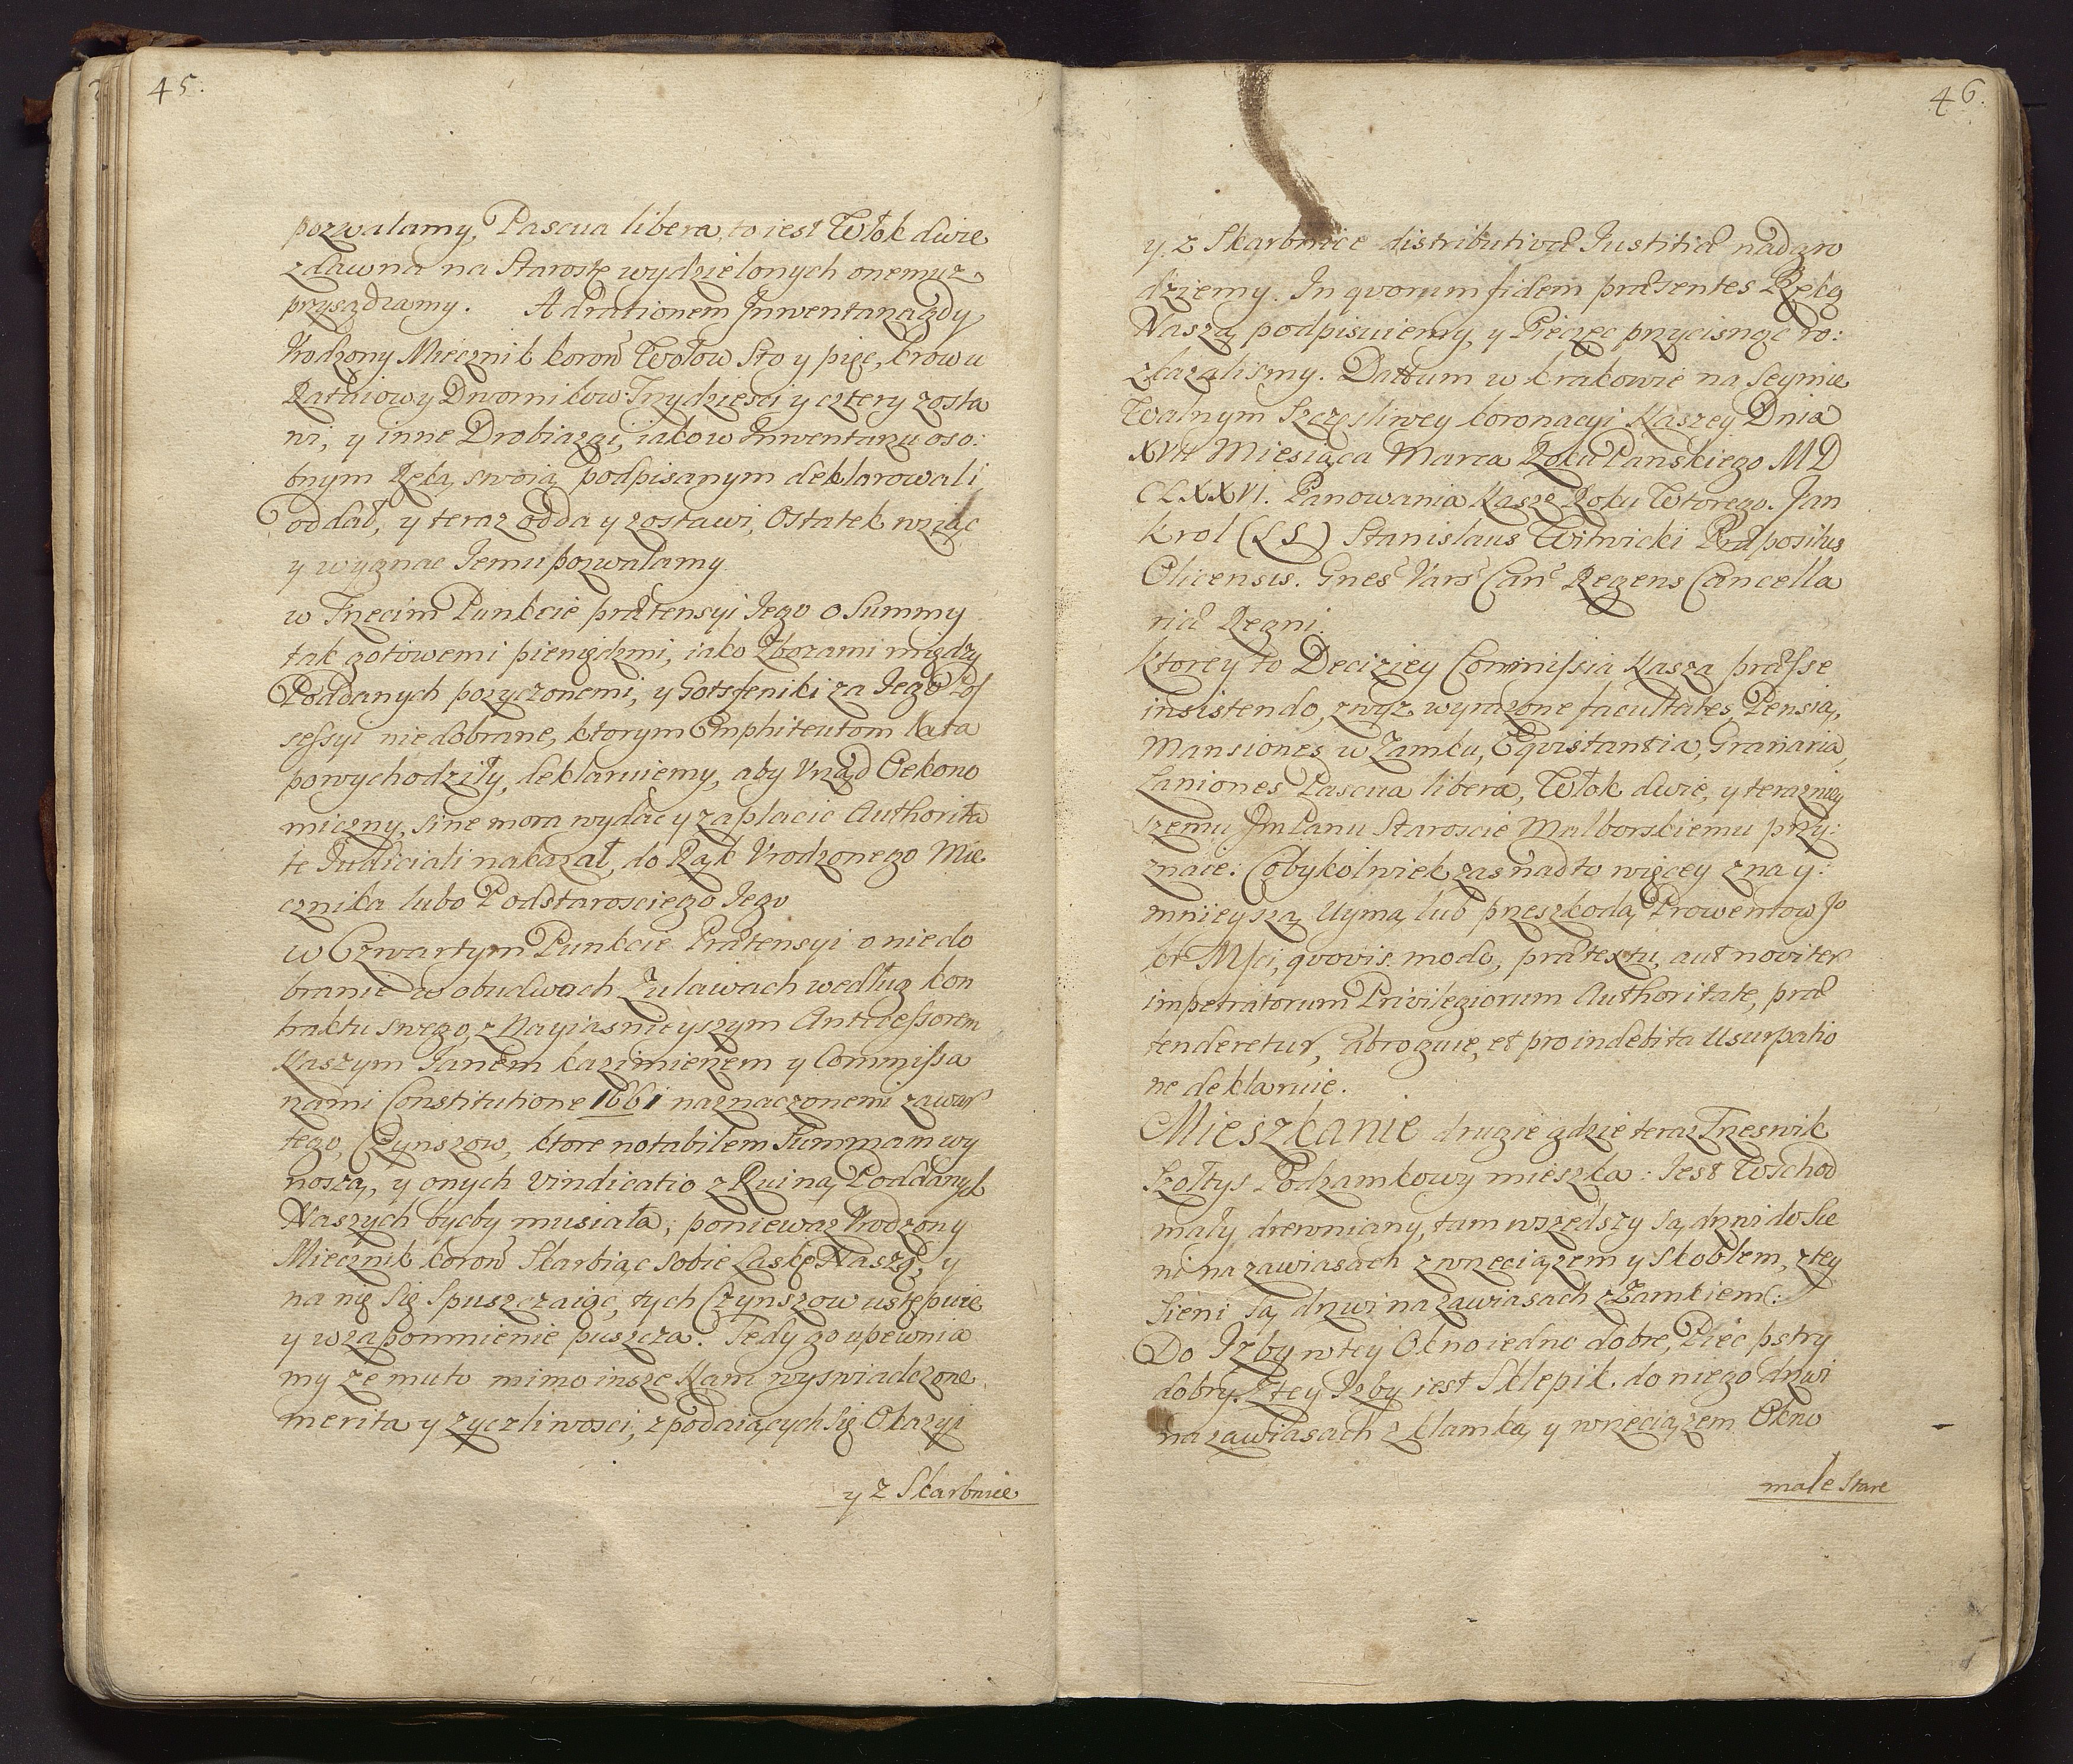 45.
pozwalamy, Pascua libera, to iest Włok dwie
zdawna na Starostę wydzielonych onemuz
przysądzamy. Ad rationem Jnwentarza gdy
Vrodzony Miecznik koroñ Wołow Sto y pięc, krow u
Rataiow y Dwornikow Trzydziesci y cztery zosta
wi, y inne Drobiazgi, iako w Jnwentarzu oso:
bnym Ręką swoią podpisanym deklarowali
oddał, y teraz odda y zostawi, Ostatek wziąc
y wygnac Jemu pozwalamy
w Trzecim Punkcie prætensyi Jego o Summy
tak gotowemi pieniędzmi, iako Zbozami między
Poddanych pozyczonemi, y Gotsfeniki za Jego Pos
sessyi niedobrane, ktorym Emphiteutom lata
powychodziły, deklaruiemy, aby Vrząd Oekono
miczny, sine mora wydac y zapłacic Authorita
te Judiciali nakazał, do Rąk Vrodzonego Mie
cznika lubo Podstarosciego Jego
w Czwartym Punkcie Prætensyi o niedo
branie w obudwoch Zuławach według kon
traktu swego, z Nayiasnieyszym Antecessorem
Naszym Janem kazimierzem y Commissa
rzami Constitutione 1661 naznaczonemi zawar
tego, Czynszow, ktore notabilem Summam wy
noszą, y onych vindicatio z Ruiną Poddanych
Naszych bycby musiała; poniewaz Vrodzony
Miecznik koroñ Skarbiąc sobie Łaskę Naszą, y
na nię się spuszczaiąc, tych Czynszow ustępuie
y wzapomnienie puszcza. Tedy go upewnia
my ze mu to mimo insze Nam wyswiadczone
merita y zyczliwosci, z podaiących się Okazyi
y z Skarbnice
46.
y z Skarbnice distributivæ Justitiæ nadgro
dziemy. In quorum fidem præsentes Ręką
Naszą podpisuiemy, y Pieczęc przycisnąc ro:
zkazalismy. Dattum w krakowie na Seymie
Walnym Szczęsliwey koronacyi Naszey Dnia
XVII Miesiąca Marca Roku Panskiego MD
CLXXVI. Panowania Nasze Roku Wtorego. Jan
krol (LS) Stanislaus Witwicki Præpositus
Olicensis. Gnes Vars Can Regens Cancella
riæ Regni.
ktorey to Deciziey Commissia Nasza præsse
insistendo, zwyz wyrazone facultates, Pensią,
Mansiones w Zamku, Eqvistantia, Granaria,
Laniones Pascua libera, Włok dwie, y teraznieӱ
szemu Jm Panu Staroscie Malborskiemu przy:
znaie. Cobykolwiek zas nadto więcey z nay:
mnieyszą uymą, lub przeszkodą Prowentow Jo
kr Msci, quovis modo, prætextu, aut noviter
impetratorum Privilegiorum Authoritate, præ
tenderetur, Abroguie, et pro indebita usurpatio
ne deklaruie.
Mieszkanie drugie gdzie teraz Trzeswik
Szołtys Podzamkowy mieszka: Jest Wschod
mały drewniany, tam wszedszy są drzwi do Sie
ni na zawiasach z wrzeciązem y Skoblem, z tey
Sieni są drzwi na zawiasach z Zamkiem (:
Do Jzby w tey Okno iedno dobre, Piec pstry
dobry. Z tey Jzby iest Sklepik. do niego drzwi
na zawiasach z klamką y wrzeciązem Okno
małe stare